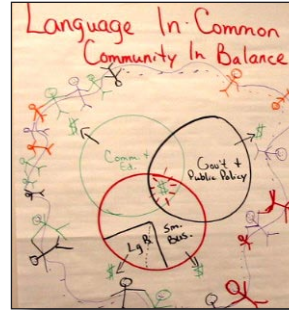 Language In Common
Community In Balance
$
$
Comm. &
Ed.
Gov't &
Public Policy
$
Lg B.
Sm.
Bus.
$
$